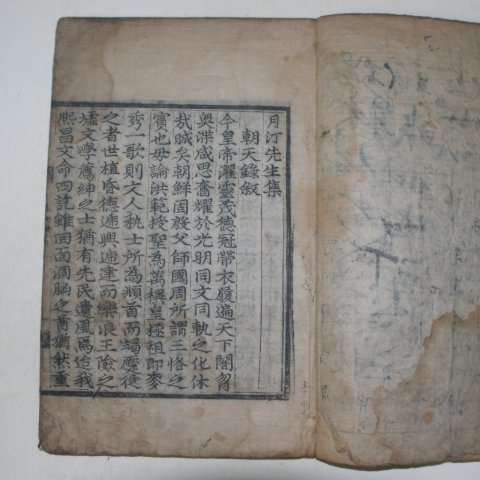 月汀先生集
朝天錄敘
今皇帝濯靈茂德冠帶衣履遍天下闇曶
與渫咸思奮耀於光明同文同軌之化休
哉臧矣朝鮮固殷父師國周所謂三恪之
賓也毋論洪範授聖為萬禩皇極祖即麥
秀一歌則文人執士所為頫首而蝎蹷徒
之者世植昏德遞興遞建而樂浪王險之
墟文學薦紳之士猶有先民遺風焉迨我
熙昌文命四訖雖回面濶胸之酋猶然重